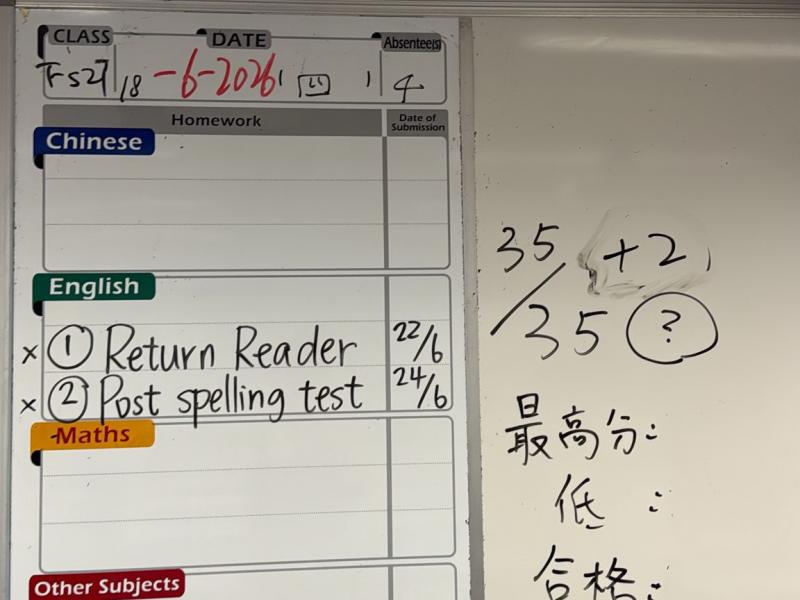 CLASS DATE Absentee(s)
18 -6-2026 四 4
Homework Date of Submission
Chinese
English
× ① Return Reader 22/6
× ② Post spelling test 24/6
Maths
Other Subjects
35 +2
/35 ?
最高分:
低 :
合格: